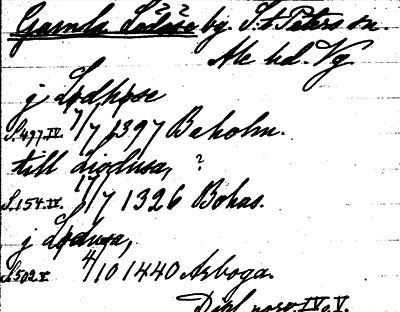 Gamla Lödöse by. S:t Peters sn.
Ale hd. Vg
j Lødhøse
S. 497 IV. 7/7 1397 Baholm.
till Liodusa, ?
S. 154 IV. 17/7 1326 Bohus.
j Lødusa,
S. 502 V 4/10 1440 Arboga.
Dipl. norv. IV o. V.